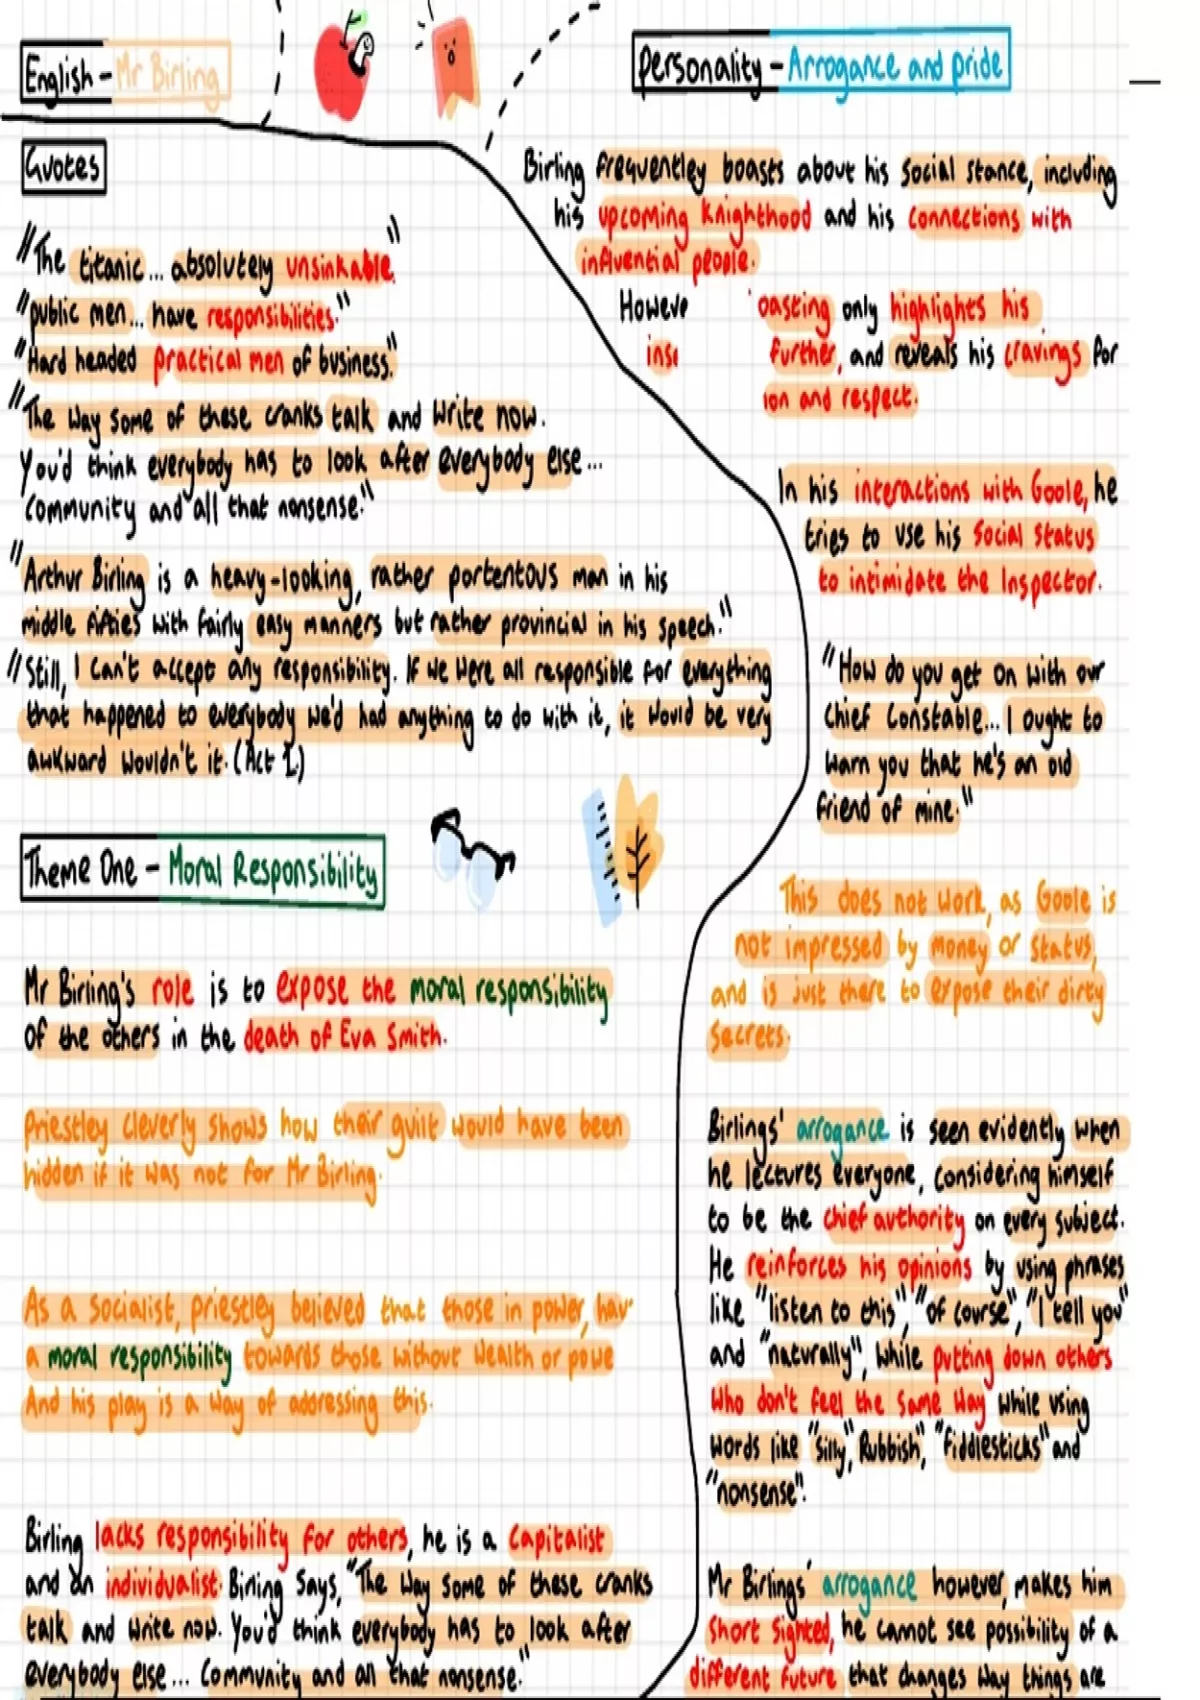 English - Mr Birling
Quotes
"The titanic... absolutely unsinkable."
"public men... have responsibilities."
"Hard headed practical men of business."
"The way some of these cranks talk and write now.
You'd think everybody has to look after everybody else...
Community and all that nonsense."
"Arthur Birling is a heavy-looking, rather portentous man in his
middle fifties with fairly easy manners but rather provincial in his speech."
"Still, I can't accept any responsibility. If we were all responsible for everything
that happened to everybody we'd had anything to do with it, it would be very
awkward wouldn't it. (Act 1.)
Theme One - Moral Responsibility
Mr Birling's role is to expose the moral responsibility
of the others in the death of Eva Smith.
Priestley cleverly shows how their guilt would have been
hidden if it was not for Mr Birling.
As a socialist, priestley believed that those in power, hav
a moral responsibility towards those without wealth or powe
And his play is a way of addressing this.
Birling lacks responsibility for others, he is a capitalist
and an individualist. Birling says, "The way some of these cranks
talk and write now. You'd think everybody has to look after
everybody else... Community and all that nonsense."
Personality - Arrogance and pride
Birling frequentley boasts about his social stance, including
his upcoming knighthood and his connections with
influential people.
Howeve oasting only highlights his
inse further, and reveals his cravings for
ion and respect.
In his interactions with Goole, he
tries to use his social status
to intimidate the Inspector.
"How do you get on with our
Chief Constable... I ought to
warn you that he's an old
friend of mine."
This does not work, as Goole is
not impressed by money or status,
and is just there to expose their dirty
secrets.
Birlings' arrogance is seen evidently when
he lectures everyone, considering himself
to be the chief authority on every subject.
He reinforces his opinions by using phrases
like "listen to this", "of course", "I tell you"
and "naturally", while putting down others
who don't feel the same way while using
words like "silly", Rubbish", "fiddlesticks" and
"nonsense".
Mr Birlings' arrogance however, makes him
short sighted, he cannot see possibility of a
different future that changes way things are